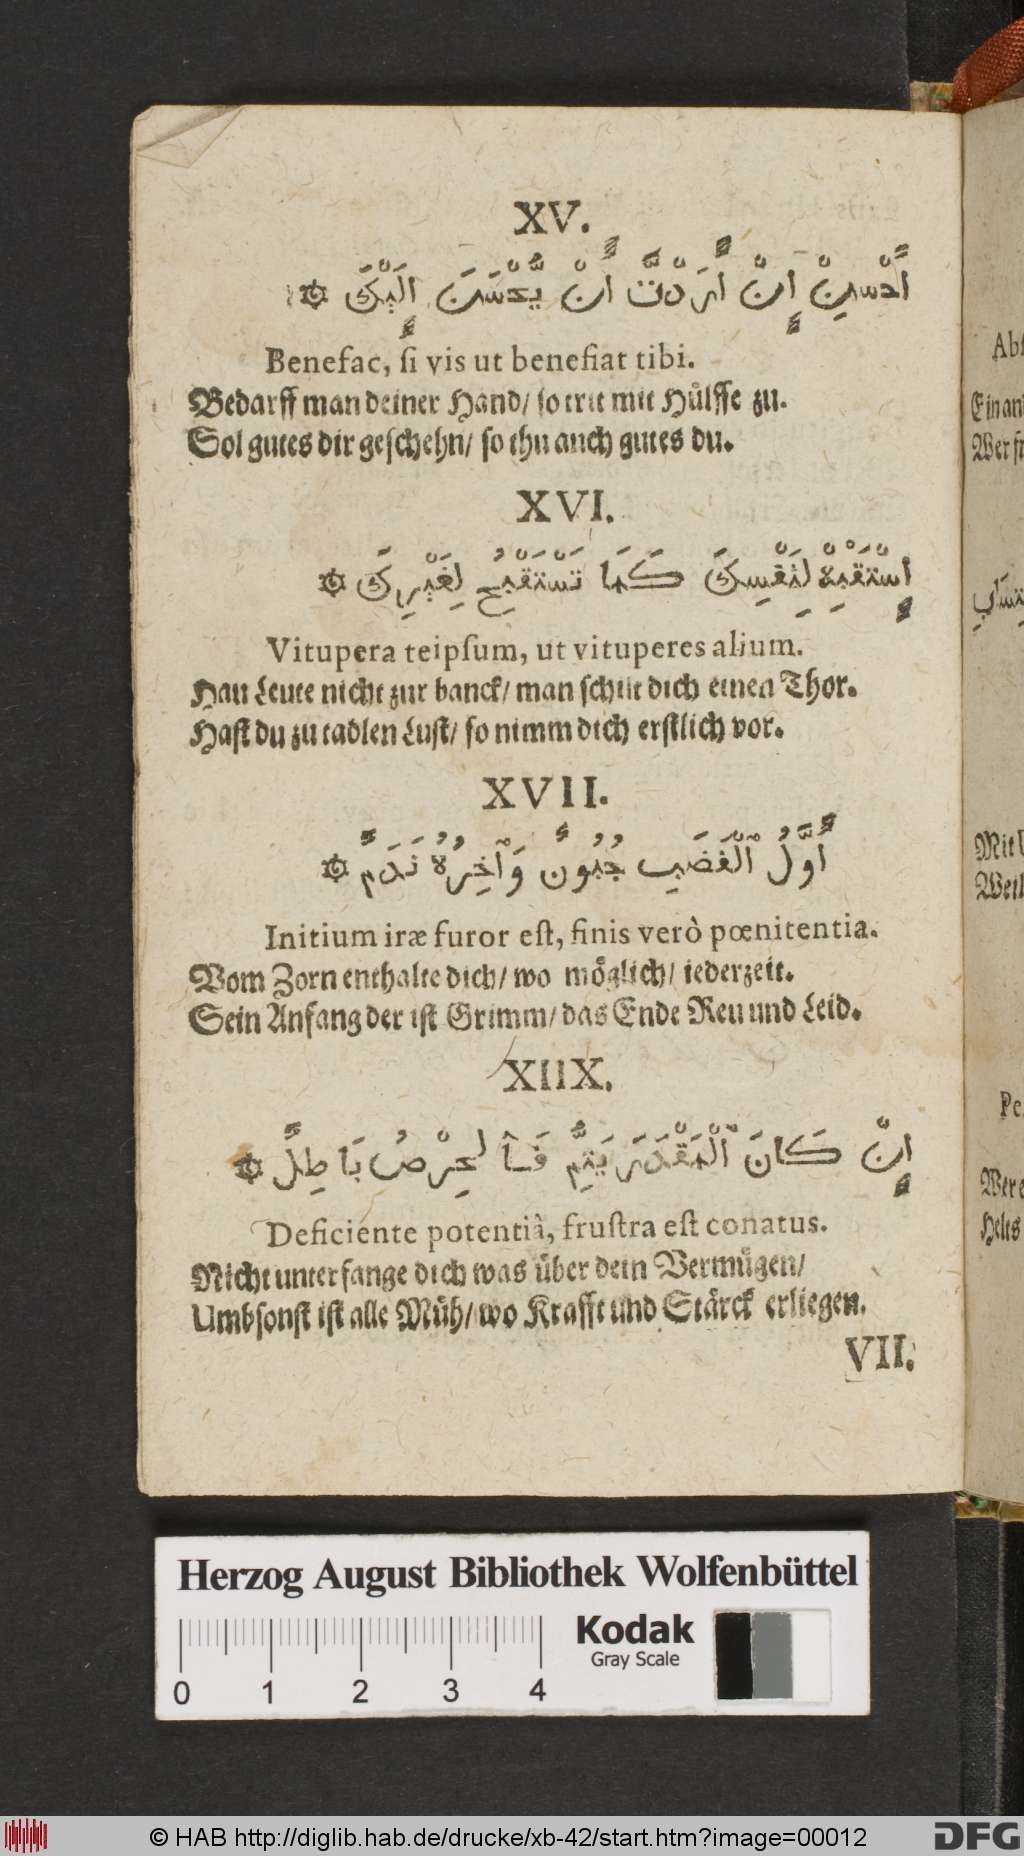 XV.
أَحْسِنْ إِنْ أَرَدْتَّ أَنْ يُّحْسَنَ إِلَيْكَ ۞
Benefac, ſi vis ut benefiat tibi.
Bedarff man deiner Hand/ ſo trit mit Hülffe zu.
Sol gutes dir geſchehn/ ſo thu auch gutes du.
XVI.
إِسْتَقْبِحْ لِنَفْسِكَ كَمَا تَسْتَقْبِحُ لِغَيْرِكَ ۞
Vitupera teipſum, ut vituperes alium.
Hau Leute nicht zur banck/ man ſchilt dich einen Thor.
Haſt du zu tadlen Luſt/ ſo nimm dich erſtlich vor.
XVII.
أَوَّلُ ٱلْغَضَبِ جُنُونٌ وَآخِرُهُ نَدَمٌ ۞
Initium iræ furor eſt, finis verò pœnitentia.
Vom Zorn enthalte dich/ wo möglich/ iederzeit.
Sein Anfang der iſt Grimm/ das Ende Reu und Leid.
XIIX.
إِنْ كَانَ ٱلْمَقْدَرَ يَتِمُّ فَٱلْحِرْصُ بَاطِلٌ ۞
Deficiente potentiâ, fruſtra eſt conatus.
Nicht unterfange dich was über dein Vermügen/
Umbſonſt iſt alle Müh/ wo Krafft und Stärck erliegen.
VII.
Herzog August Bibliothek Wolfenbüttel
Kodak
Gray Scale
0 1 2 3 4
© HAB http://diglib.hab.de/drucke/xb-42/start.htm?image=00012
DFG